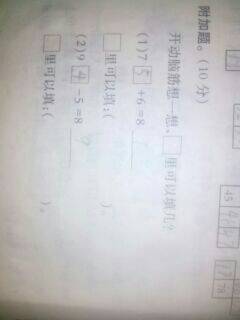 附加题。(10 分)
开动脑筋想一想,□里可以填几?
(1)7 5 +6=8
□里可以填:( )。
(2)9 4 -5=8
□里可以填:( )。
45
76